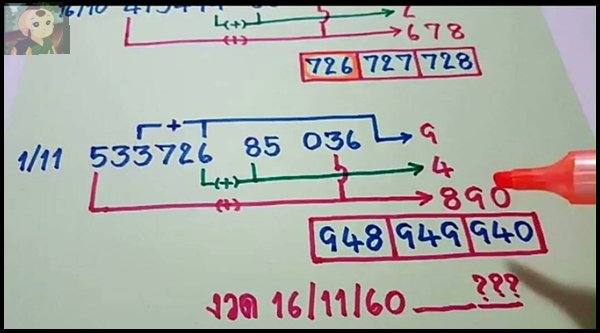 16/10
(+)
(+) 678
726 727 728
+ 9
1/11 533726 85 036
(+) 4
(+) 890
948 949 940
งวด 16/11/60 ___ ???